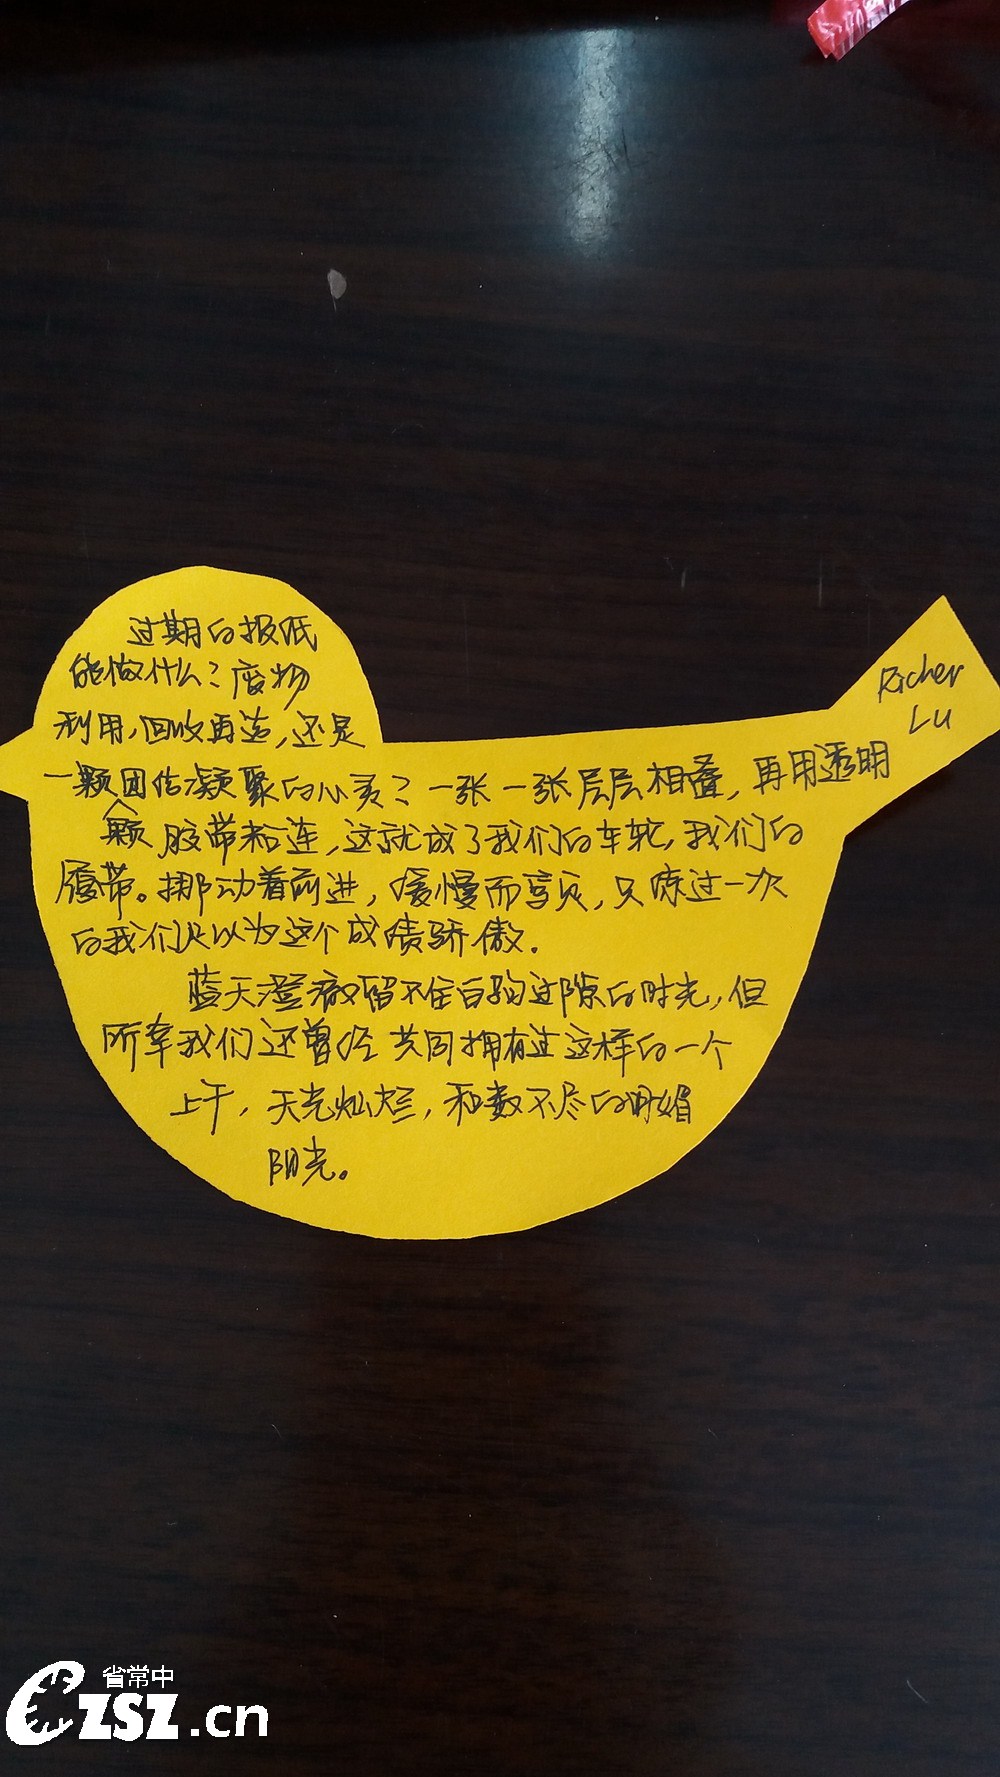 过期的报纸
能做什么？废物
利用，回收再造，还是
一颗团结凝聚的心灵？一张一张层层相叠，再用透明
颗
胶带粘连，这就成了我们的车轮，我们的
履带。挪动着前进，缓慢而写实，只练过一次
的我们足以为这个成绩骄傲。
蓝天澄澈留不住白驹过隙的时光，但
所幸我们还曾经共同拥有过这样的一个
上午，天光灿烂，和数不尽的明媚
阳光。
Richer
LU
省常中
CZSZ.cn